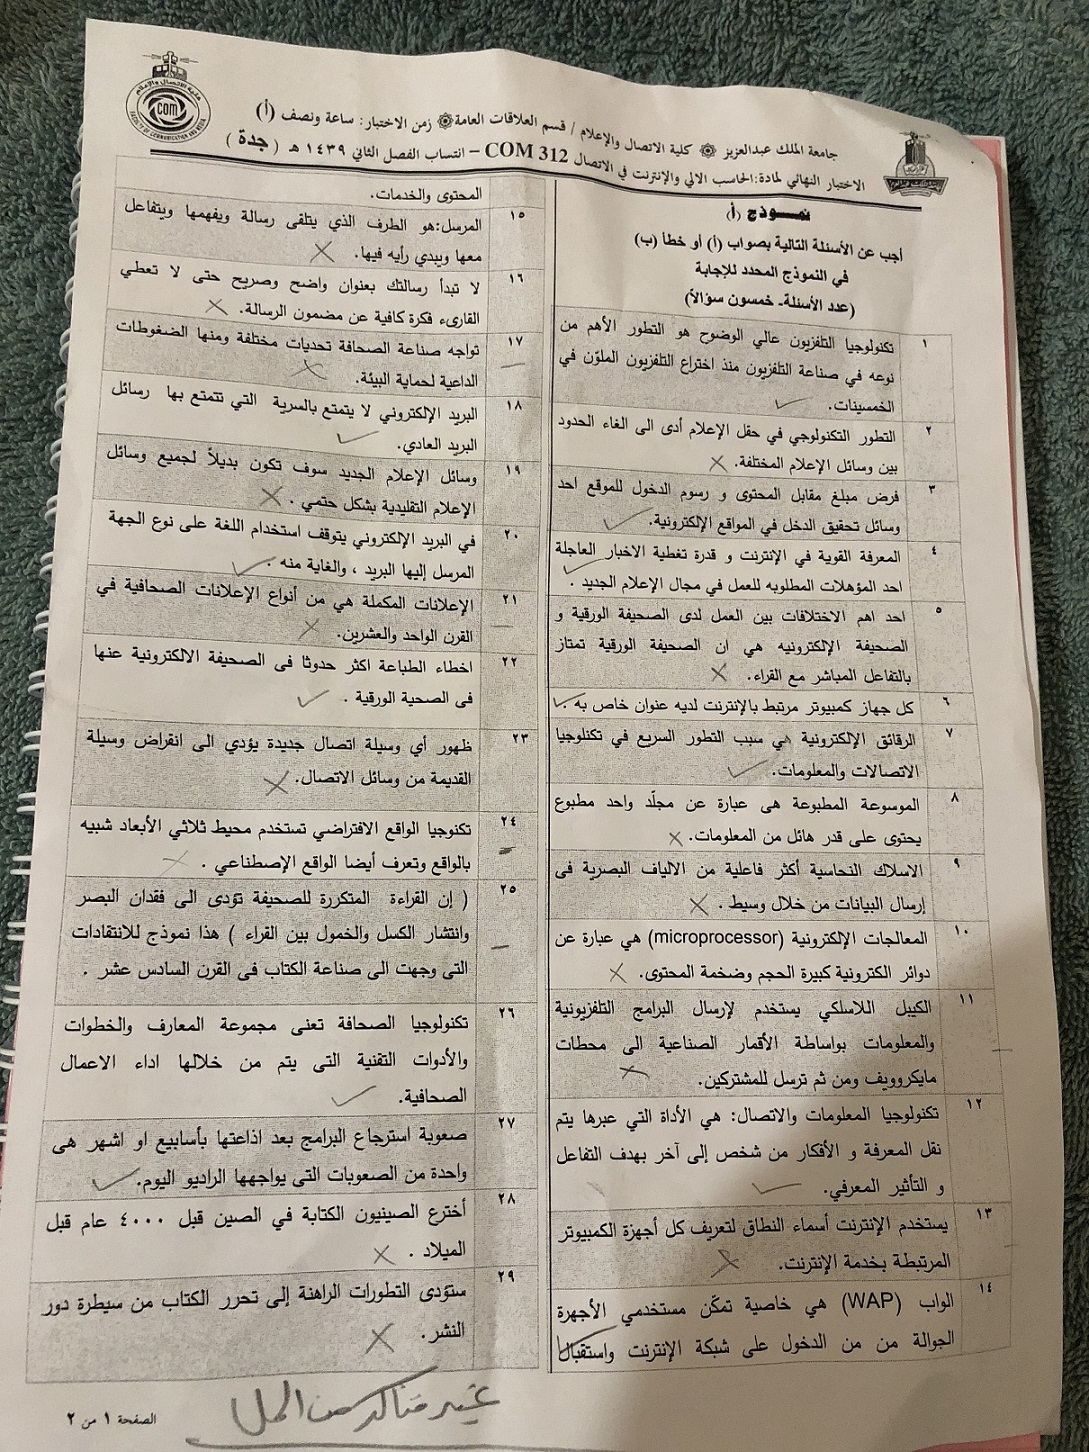 كلية الاتصال والإعلام
COM
FACULTY OF COMMUNICATION AND MEDIA
جامعة الملك عبدالعزيز ۞ كلية الاتصال والإعلام / قسم العلاقات العامة۞ زمن الاختبار: ساعة ونصف (أ)
الاختبار النهائي لمادة:الحاسب الالي والإنترنت في الاتصال COM 312 – انتساب الفصل الثاني ١٤٣٩ هـ ( جدة )
نمـــوذج (أ)
أجب عن الأسئلة التالية بصواب (أ) أو خطأ (ب)
في النموذج المحدد للإجابة
(عدد الأسئلة- خمسون سؤالاً)
١ تكنولوجيا التلفزيون عالي الوضوح هو التطور الأهم من
نوعه في صناعة التلفزيون منذ اختراع التلفزيون الملوّن في
الخمسينات. ✓
٢ التطور التكنولوجي في حقل الإعلام أدى الى الغاء الحدود
بين وسائل الإعلام المختلفة. ✗
٣ فرض مبلغ مقابل المحتوى و رسوم الدخول للموقع احد
وسائل تحقيق الدخل في المواقع الإلكترونية. ✓
٤ المعرفة القوية في الإنترنت و قدرة تغطية الاخبار العاجلة
احد المؤهلات المطلوبه للعمل في مجال الإعلام الجديد . ✓
٥ احد اهم الاختلافات بين العمل لدى الصحيفة الورقية و
الصحيفة الإلكترونيه هي ان الصحيفة الورقية تمتاز
بالتفاعل المباشر مع القراء. ✗
٦ كل جهاز كمبيوتر مرتبط بالإنترنت لديه عنوان خاص به . ✓
٧ الرقائق الإلكترونية هي سبب التطور السريع في تكنلوجيا
الاتصالات والمعلومات. ✓
٨ الموسوعة المطبوعة هى عبارة عن مجلّد واحد مطبوع
يحتوى على قدر هائل من المعلومات. ✗
٩ الاسلاك النحاسية أكثر فاعلية من الالياف البصرية فى
إرسال البيانات من خلال وسيط . ✗
١٠ المعالجات الإلكترونية (microprocessor) هي عبارة عن
دوائر الكترونية كبيرة الحجم وضخمة المحتوى. ✗
١١ الكيبل اللاسلكي يستخدم لإرسال البرامج التلفزيونية
والمعلومات بواسطة الأقمار الصناعية الى محطات
مايكروويف ومن ثم ترسل للمشتركين. ✗
١٢ تكنولوجيا المعلومات والاتصال: هي الأداة التي عبرها يتم
نقل المعرفة و الأفكار من شخص إلى آخر بهدف التفاعل
و التأثير المعرفي. ✓
١٣ يستخدم الإنترنت أسماء النطاق لتعريف كل أجهزة الكمبيوتر
المرتبطة بخدمة الإنترنت. ✗
١٤ الواب (WAP) هي خاصية تمكّن مستخدمي الأجهرة
الجوالة من من الدخول على شبكة الإنترنت واستقبال ✓
المحتوى والخدمات.
١٥ المرسل:هو الطرف الذي يتلقى رسالة ويفهمها ويتفاعل
معها ويبدي رأيه فيها. ✗
١٦ لا تبدأ رسالتك بعنوان واضح وصريح حتى لا تعطي
القارىء فكرة كافية عن مضمون الرسالة. ✗
١٧ تواجه صناعة الصحافة تحديات مختلفة ومنها الضغوطات
الداعية لحماية البيئة. ✗
١٨ البريد الإلكتروني لا يتمتع بالسرية التي تتمتع بها رسائل
البريد العادي. ✓
١٩ وسائل الإعلام الجديد سوف تكون بديلاً لجميع وسائل
الإعلام التقليدية بشكل حتمي . ✗
٢٠ في البريد الإلكتروني يتوقف استخدام اللغة على نوع الجهة
المرسل إليها البريد ، والغاية منه . ✓
٢١ الإعلانات المكملة هي من أنواع الإعلانات الصحافية في
القرن الواحد والعشرين. ✗
٢٢ اخطاء الطباعة اكثر حدوثا فى الصحيفة الالكترونية عنها
فى الصحية الورقية . ✓
٢٣ ظهور أي وسيلة اتصال جديدة يؤدي الى انقراض وسيلة
القديمة من وسائل الاتصال. ✗
٢٤ تكنوجيا الواقع الافتراضي تستخدم محيط ثلاثي الأبعاد شبيه
بالواقع وتعرف أيضا الواقع الإصطناعي . ✗
٢٥ ( إن القراءة المتكررة للصحيفة تؤدى الى فقدان البصر
وانتشار الكسل والخمول بين القراء ) هذا نموذج للانتقادات
التى وجهت الى صناعة الكتاب فى القرن السادس عشر .
٢٦ تكنولوجيا الصحافة تعنى مجموعة المعارف والخطوات
والأدوات التقنية التى يتم من خلالها اداء الاعمال
الصحافية. ✓
٢٧ صعوبة استرجاع البرامج بعد اذاعتها بأسابيع او اشهر هى
واحدة من الصعوبات التى يواجهها الراديو اليوم. ✓
٢٨ أخترع الصينيون الكتابة في الصين قبل ٤٠٠٠ عام قبل
الميلاد . ✗
٢٩ ستؤدى التطورات الراهنة إلى تحرر الكتاب من سيطرة دور
النشر. ✗
غير متأكد من الحل
الصفحة ١ من ٢